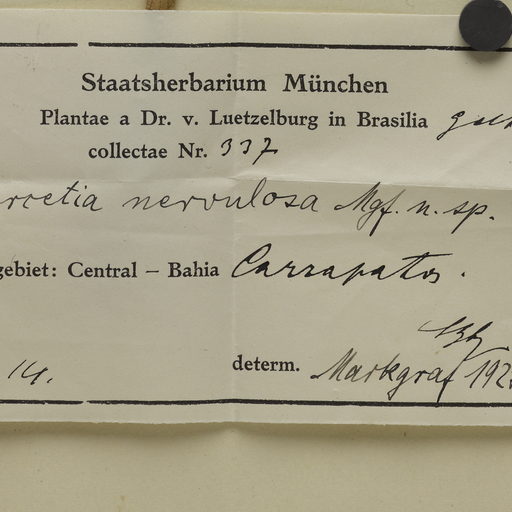 Staatsherbarium München
Plantae a Dr. v. Luetzelburg in Brasilia
collectae Nr. 337
rcetia nervulosa Mgf. n. sp.
gebiet: Central – Bahia Carrapatos.
14. determ. Markgraf 192